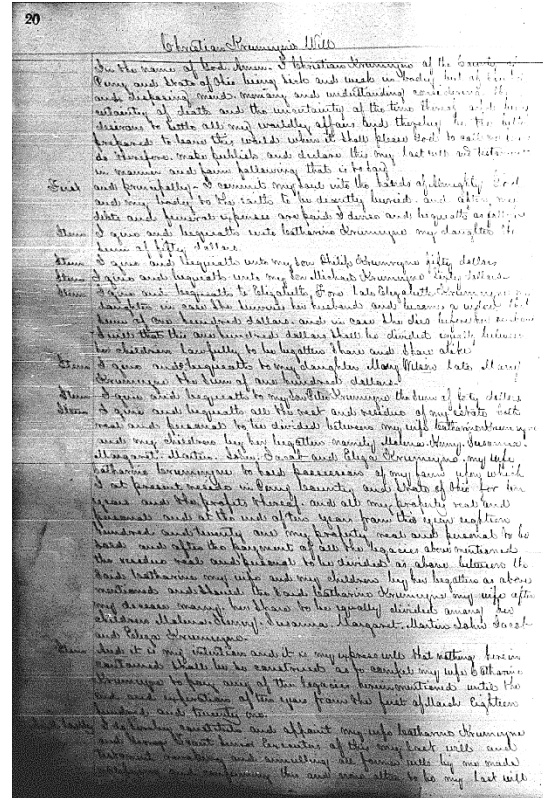 20
Christian Krumeyne Will
In the name of God Amen. I Christian Krumeyne of the County of
Perry and State of Ohio being sick and weak in body but of
and disposing mind, memory and understanding considering the
certainty of death and the uncertainty of the time thereof and being
desirous to settle all my worldly affairs and thereby be the better
prepared to leave this world when it shall please God to call me
do therefore make publish and declare this my last will and testament
in manner and form following that is to say
First and principally. I commit my soul into the hands of Almighty God
and my body to the earth to be decently buried. and after my
debts and funeral expenses are paid I devise and bequeath as follows
Item I give and bequeath unto Catharine Krumeyne my daughter the
sum of fifty dollars.
Item I give and bequeath unto my son Philip Krumeyne fifty dollars
Item I give and bequeath unto my son Michael Krumeyne dollars
Item I give and bequeath to Elizabeth late Elizabeth Krumeyne my
daughter in case she survives her husband and become a widow the
sum of one hundred dollars. and in case she dies before her husband
I will that the one hundred dollars shall be divided equally between
her children lawfully to be begotten share and share alike
Item I give and bequeath to my daughter Mary Wilson late Mary
Krumeyne the sum of one hundred dollars.
Item I give and bequeath to my son Peter Krumeyne the sum of dollars
Item I give and bequeath all the rest and residue of my estate both
real and personal to be divided between my wife Catharine Krumeyne
and my children by her begotten namely Malena. Henry. Susanna.
Margaret. Martin. John. Jacob and Eliza Krumeyne. my wife
Catharine Krumeyne to hold possession of my farm upon which
I at present reside in Perry County and State of Ohio for ten
years and the profits thereof. and all my property real and
personal and at the end of ten years from this year eighteen
hundred and twenty one my property real and personal to be
sold and after the payment of all the legacies above mentioned
the residue real and personal to be divided as above between the
said Catharine my wife and my children by her begotten as above
mentioned and should the said Catharine Krumeyne my wife after
my decease marry. her share to be equally divided among her
children Malena. Henry. Susanna. Margaret. Martin John Jacob
and Eliza Krumeyne.
Item And it is my intention and it is my express will that nothing herein
contained shall be so construed as to compel my wife Catharine
Krumeyne to pay any of the legacies herein mentioned until the
end and expiration of ten years from the first of March Eighteen
hundred and twenty one.
And lastly I do hereby constitute and appoint my wife Catharine Krumeyne
and George Senior Executors of this my last will and
testament revoking and annulling all former wills by me made
ratifying and confirming this and none other to be my last will